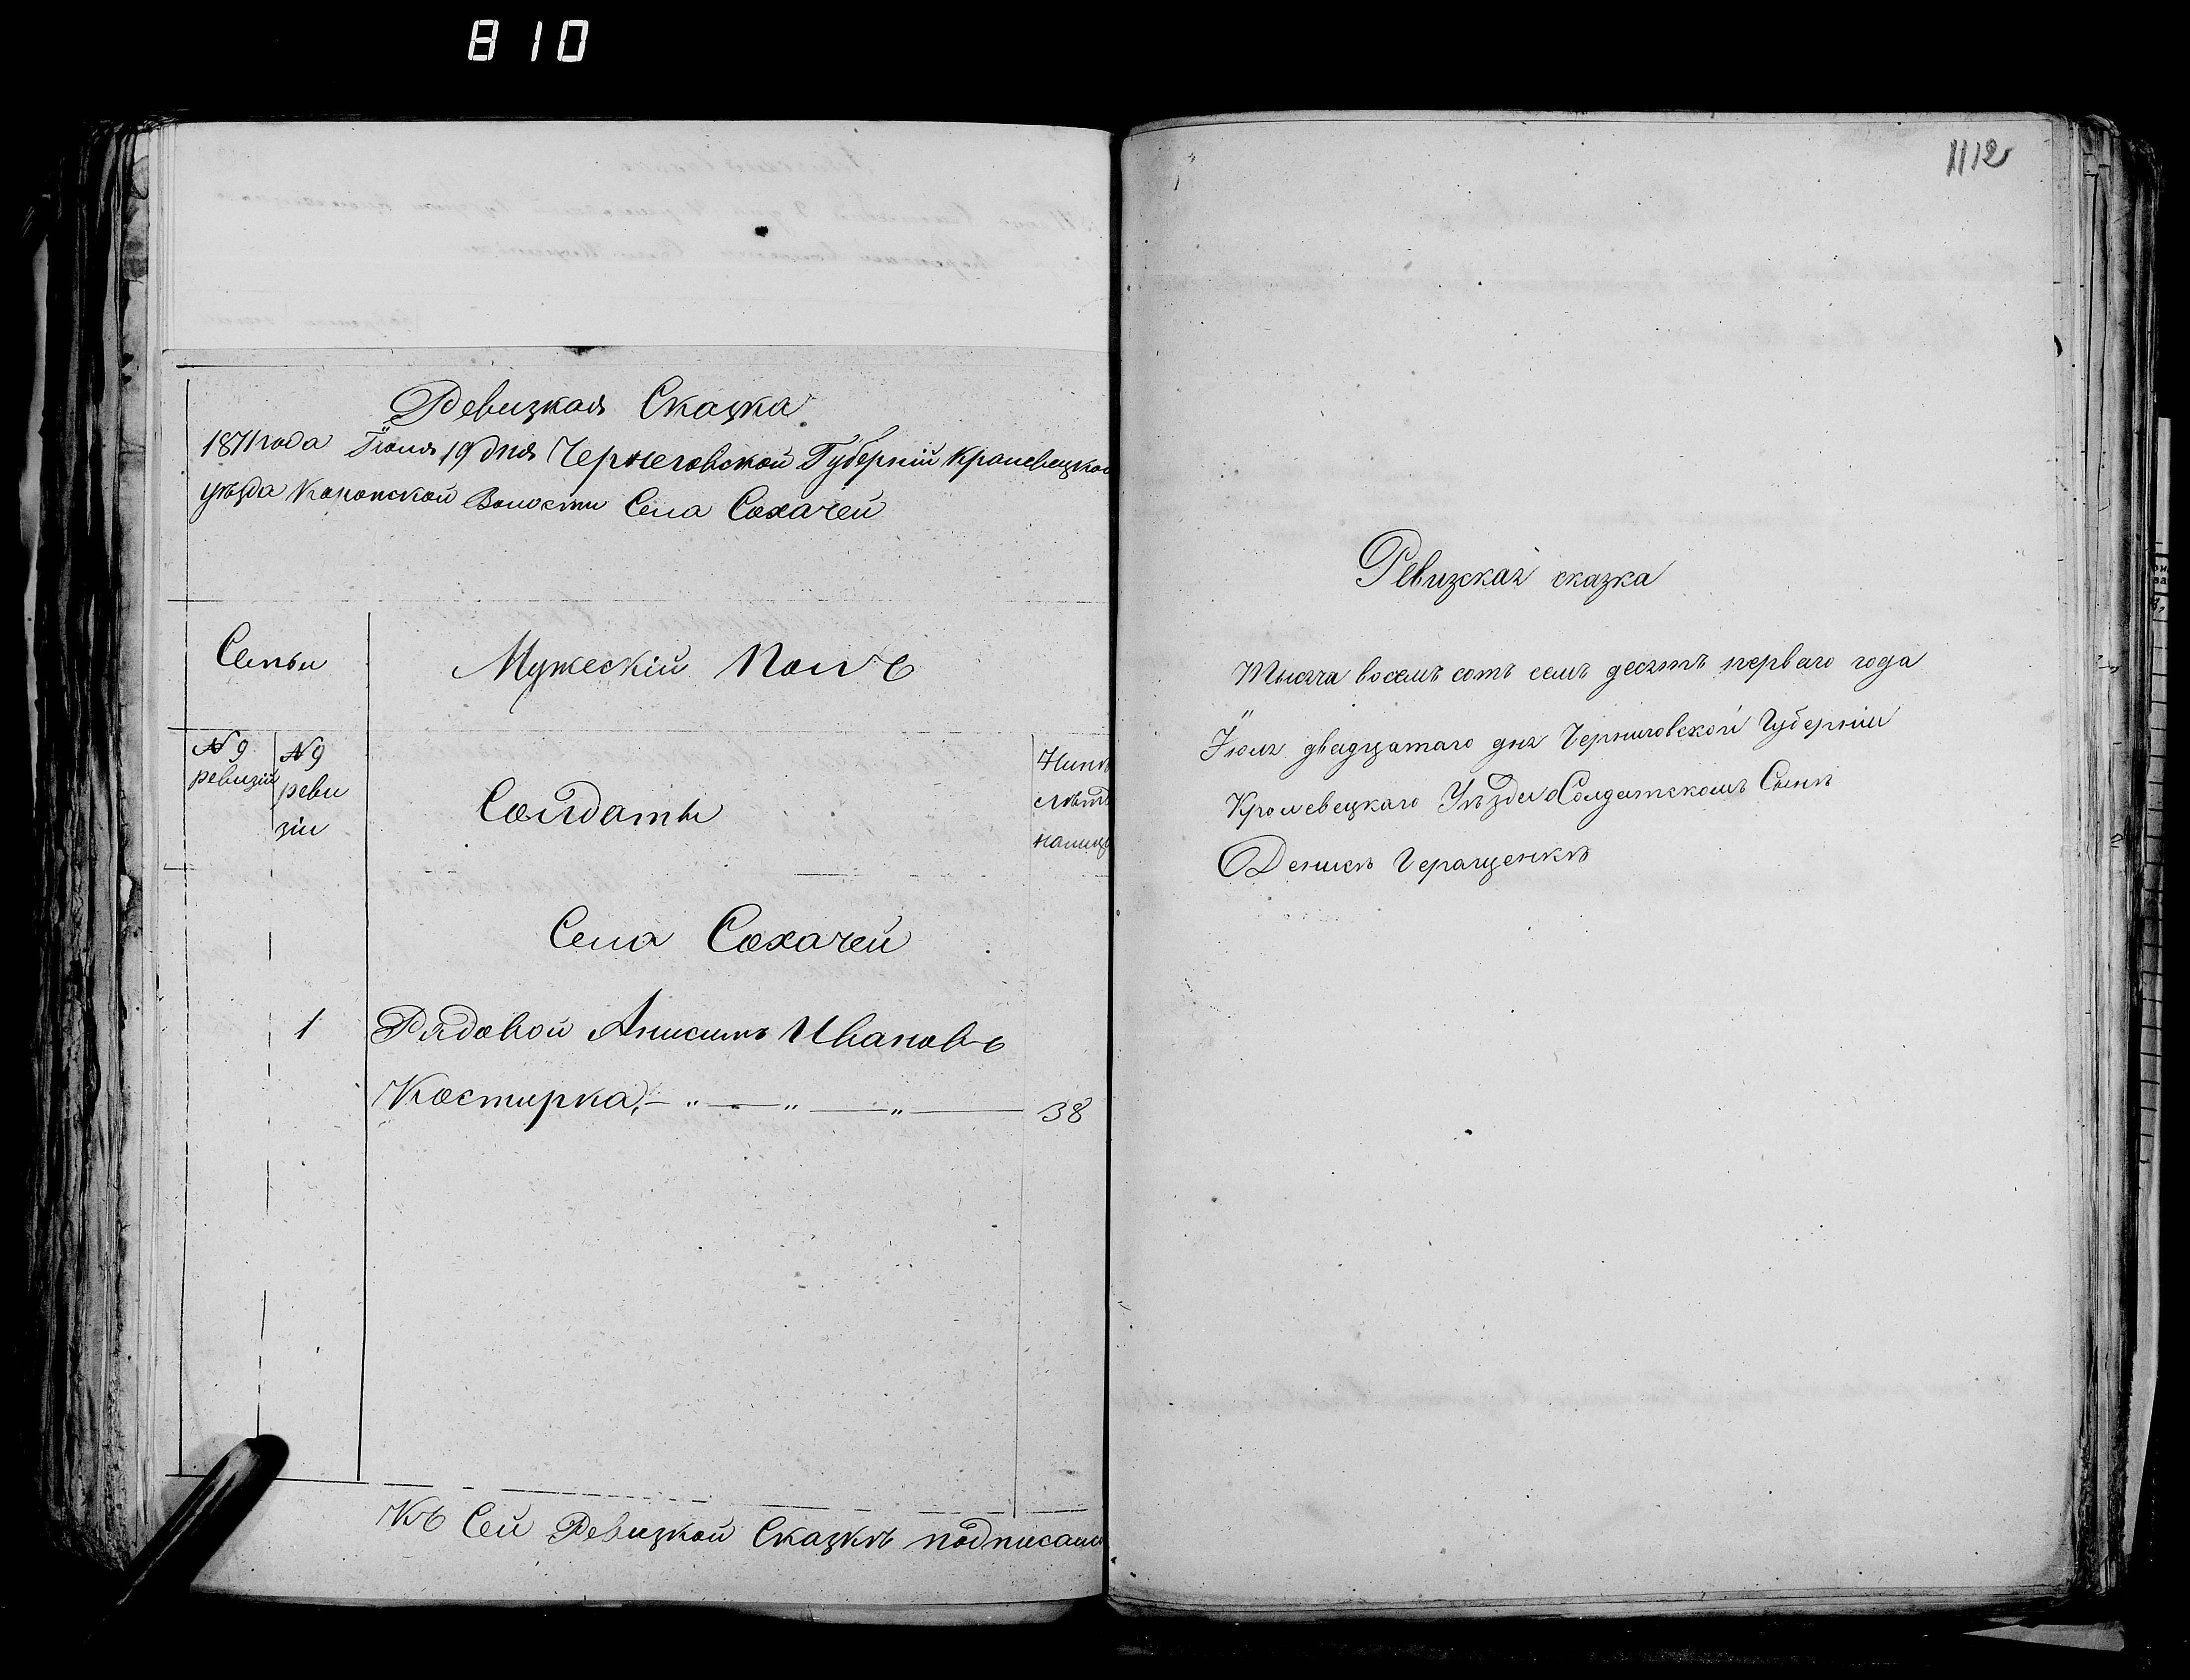 810
Ревизкая Сказка
1871 года Іюля 19 дня Чернеговской Губерній Кралевецкаго
уѣзда Коропской Волости Села Сохачей
Семьи
Мужескій Полъ
№ 9
ревизіи
№ 9
реви
зіи
Солдаты
Число
лѣтъ
налицо
Села Сохачей
1
Рядовой Анисимъ Ивановъ
Костирка, — „ — „ — „ — 38
Къ Сей Ревизкой Сказкѣ подписался
1112
Ревизская сказка
Тысяча восемъ сотъ семъ десятъ перваго года
Іюля двадцатаго дня Черниговской Губерніи
Кролевецкаго Уѣзда о Солдатскомъ Сынѣ
Денисѣ Геращенкѣ